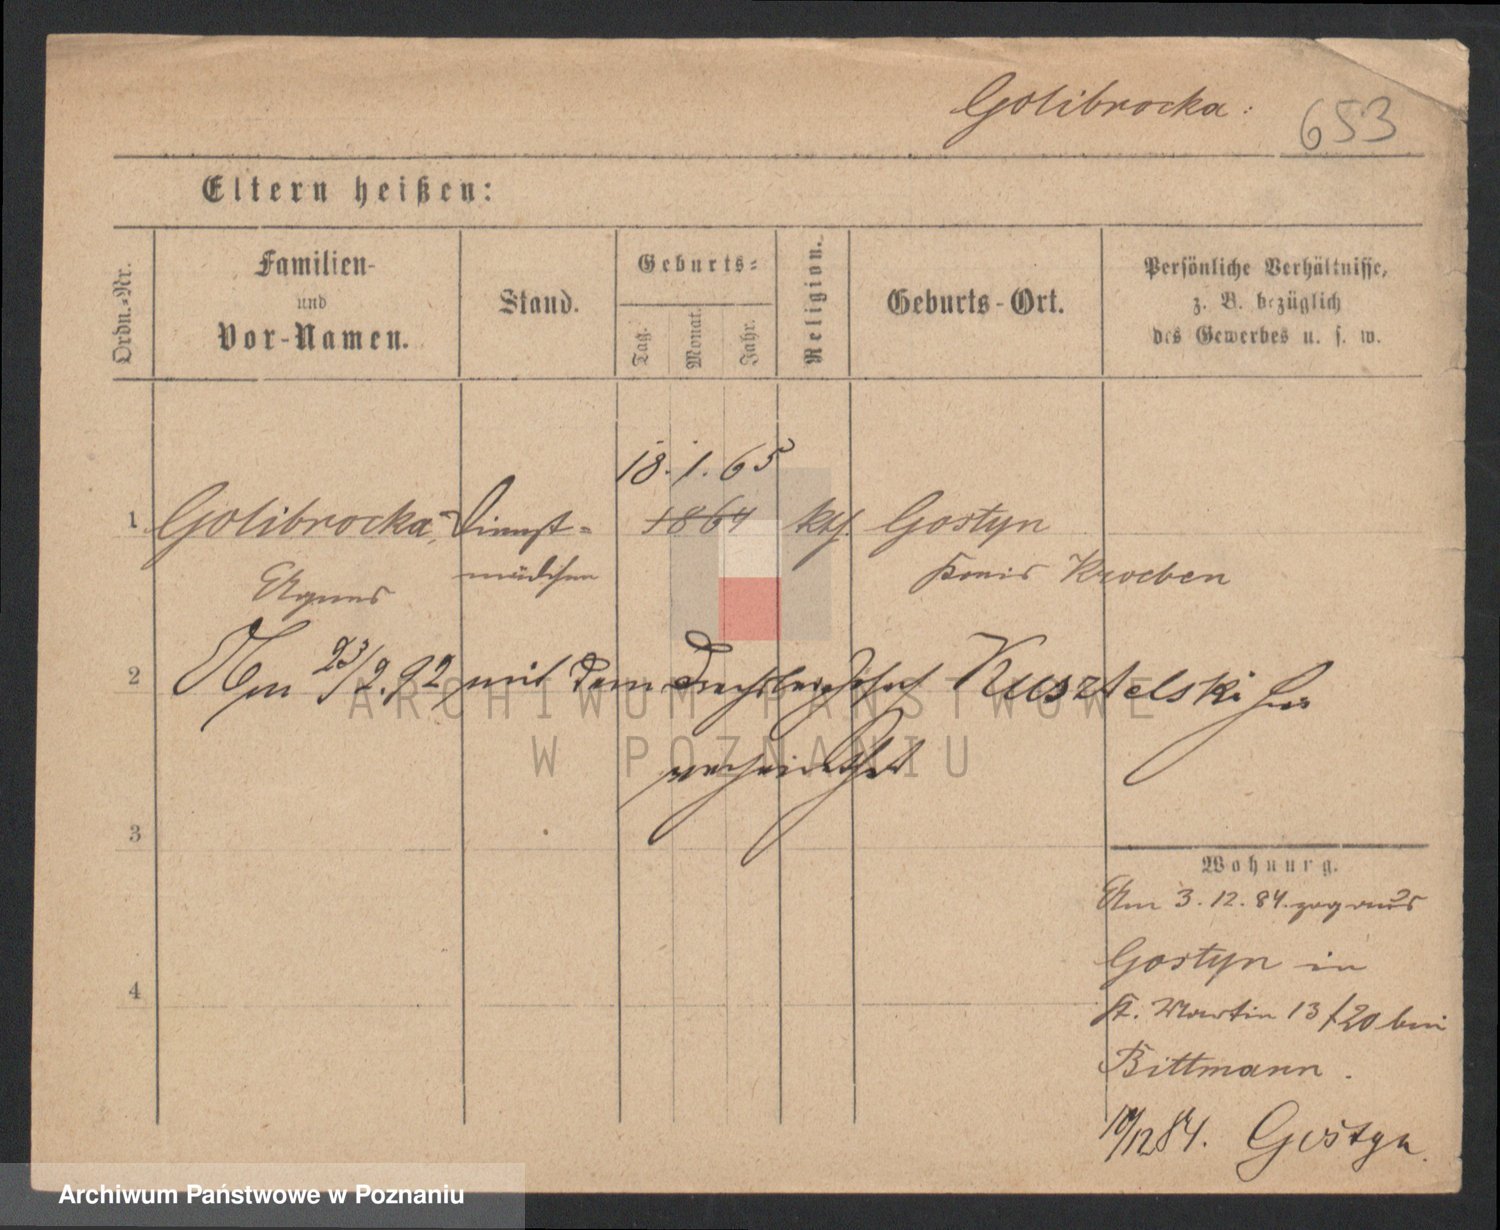 Golibrocka:
653
Eltern heißen:
Ordn.-Nr.
Familien-
und
Vor-Namen.
Stand.
Geburts-
Tag.
Monat.
Jahr.
Religion.
Geburts-Ort.
Persönliche Verhältnisse,
z. B. bezüglich
des Gewerbes u. s. w.
18. 1. 65
1 Golibrocka, Dienst- 1864 kth. Gostyn
Agnes mädchen Kreis Kroeben
2 Am 23/2.92 mit dem Drechsler Kusztelski hier
verheirathet
3
Wohnung.
Am 3.12.84. zog aus
Gostyn in
4
St. Martin 13/20 bei
Bittmann.
/12 84. Gostyn.
ARCHIWUM PAŃSTWOWE
W POZNANIU
Archiwum Państwowe w Poznaniu